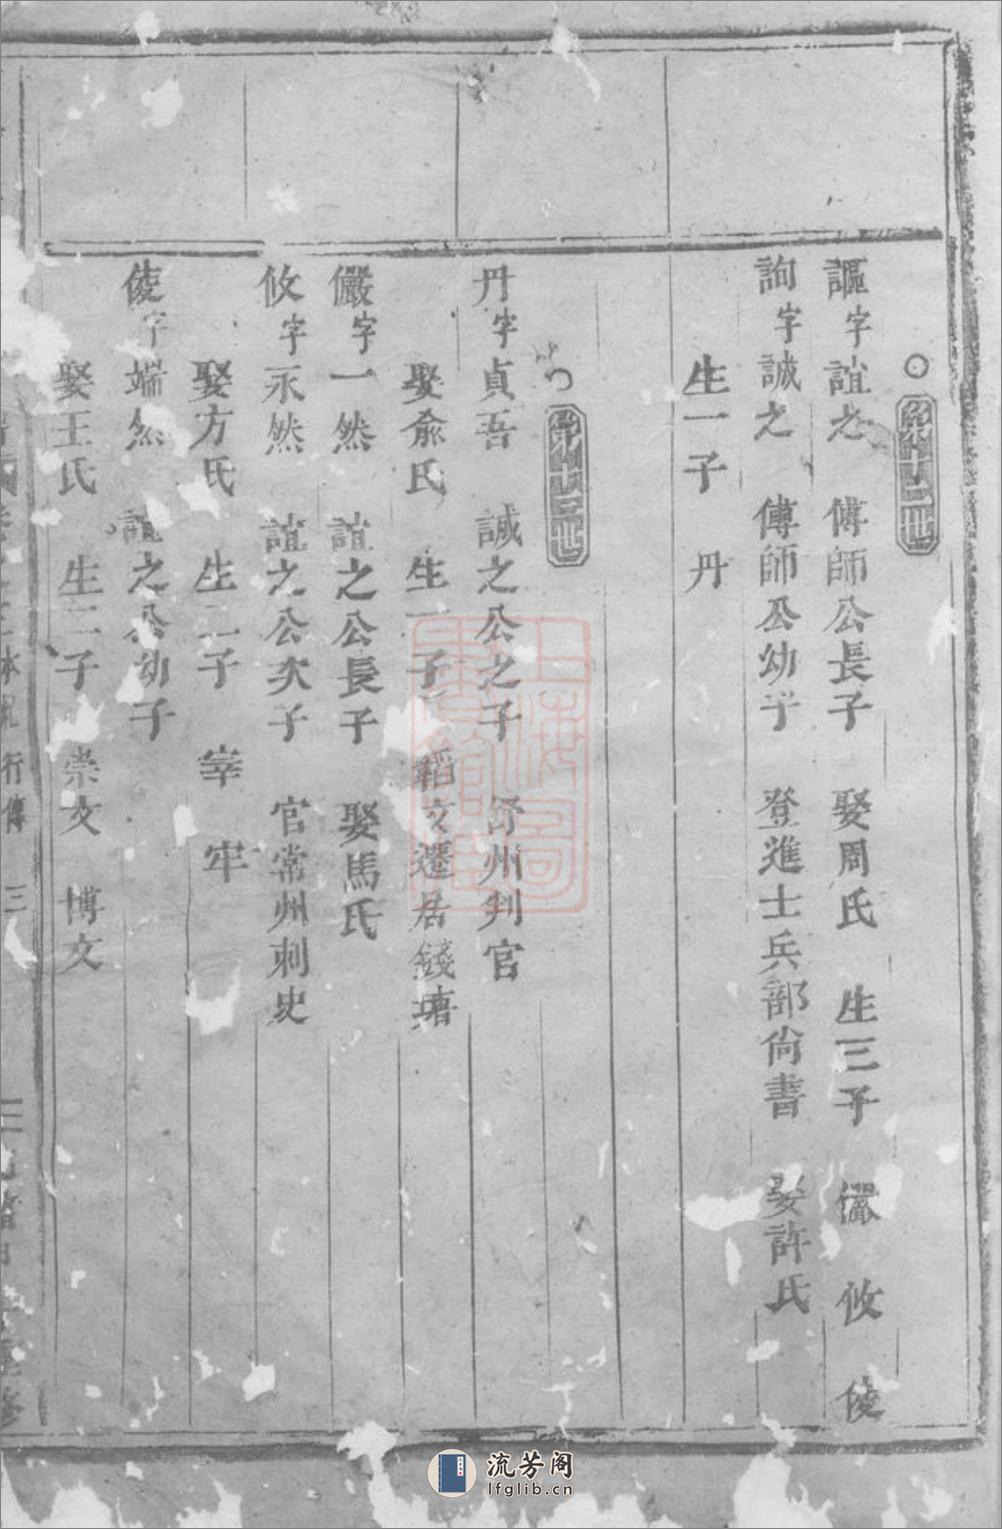 第十二世
謳字誼之 傅師公長子 娶周氏 生三子 儼 攸 倰
詢字誠之 傅師公幼子 登進士兵部尚書 娶許氏
生一子 丹
第十三世
丹字貞吾 誠之公之子 舒州判官
娶俞氏 生一子 韜文遷居錢塘
儼字一然 誼之公長子 娶馬氏
攸字永然 誼之公次子 官常州刺史
娶方氏 生二子 宰 牢
倰字端然 誼之公幼子
娶王氏 生二子 崇文 博文
行傳 三
上海圖書館藏
流芳阁
lfglib.cn